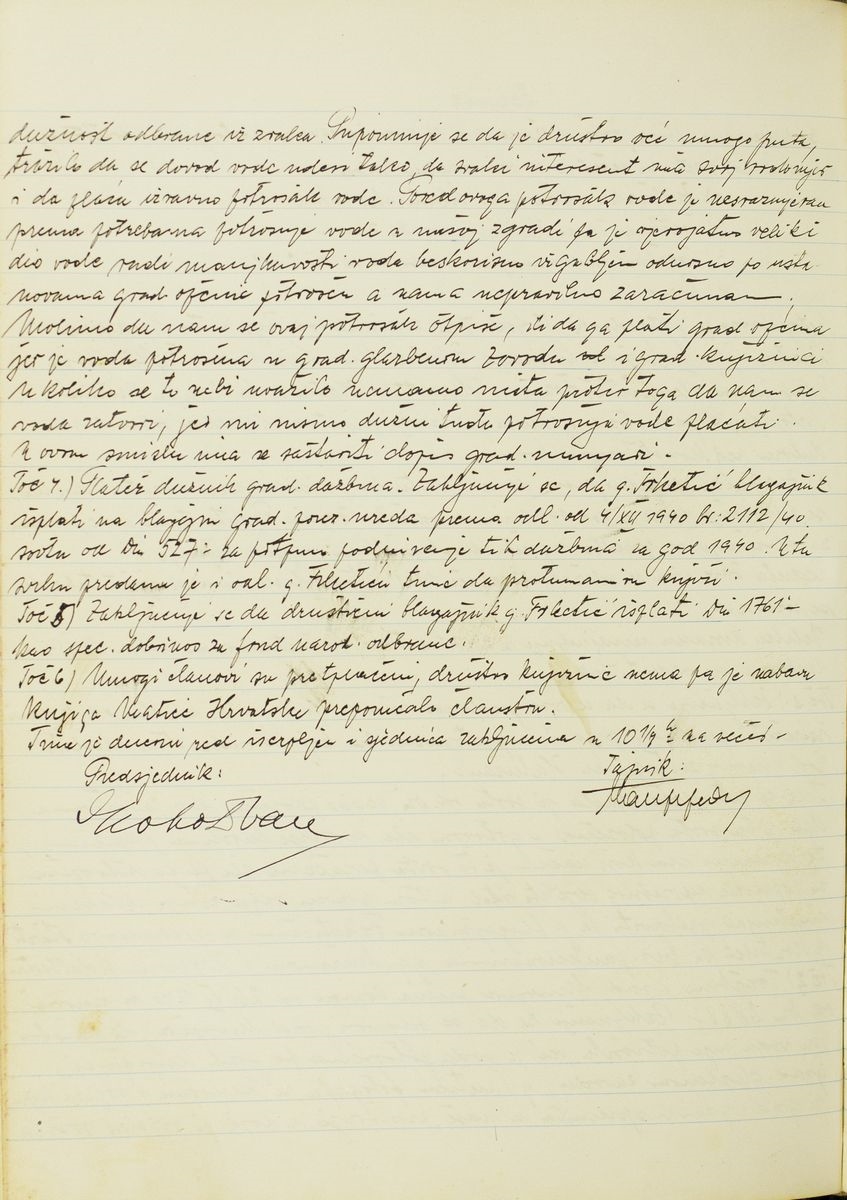 dužnost odbrane iz zraka. Pripominje se da je društvo već mnogo puta,
tražilo da se dovod vode udesi tako, da svaki interesent ima svoj vodomjer
i da plaća izravno potrošak vode. Pored ovoga potrošak vode je nesrazmjeran
prema potrebama potrošnje vode u našoj zgradi pa je vjerojatno veliki
dio vode radi manjkavosti voda beskorisno izgubljen odnosno po usta
novama grad. općine potrošen a nama nepravilno zaračunan.
Molimo da nam se ovaj potrošak otpiše, ili da ga plati grad. općina
jer je voda potrošena u grad. glazbenom zavodu i grad. knjižnici
Ukoliko se to nebi uvažilo nemamo ništa protiv toga da nam se
voda zatvori, jer mi nismo dužni tuđu potrošnju vode plaćati.
U ovom smislu ima se sastaviti dopis grad. munjari.
Toč 4.) Platež dužnih grad. dažbina. Zaključuje se, da g. Frketić blagajnik
isplati na blagajni grad. pour. ureda prema odl. od 4/XII 1940 br: 2112/40.
svotu od Din 527- za potpuno podmirenje tih dažbina za god 1940. U tu
svrhu predana je i odl. g. Frketiću
Toč 5) Zaključuje se da društveni blagajnik g. Frketić isplati Din 1761-
kao spec. doprinos za fond narod. odbrane.
Toč 6) Mnogi članovi su pretplaćeni, društvo knjižnice nema pa je nabava
knjiga Matice Hrvatske preporučalo članstvu.
Time je dnevni red iscrpljen i sjednica zaključena u 10 1/4 h na veče.-
Predsjednik: Tajnik: